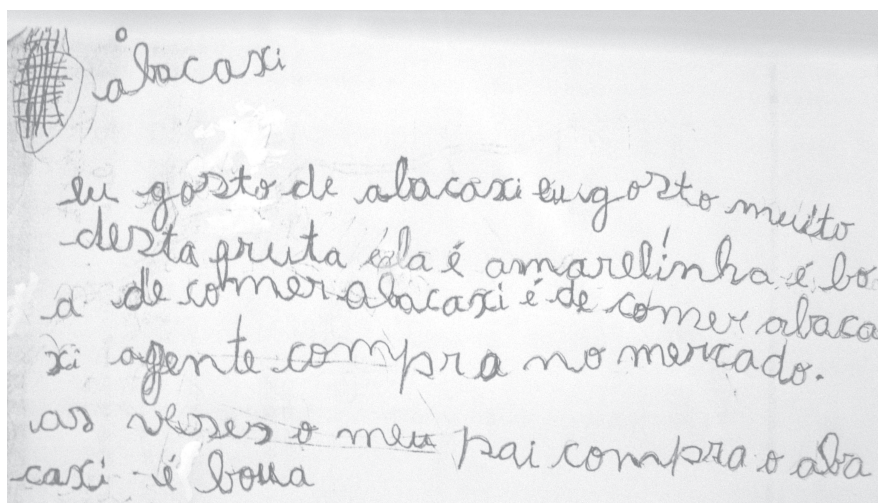 o abacaxi
eu gosto de abacaxi eu gosto muito
desta fruta éla é amarelinha é bo
a de comer abacaxi é de comer abaca
xi agente compra no mercado.
as veses o meu pai compra o aba
caxi é boua